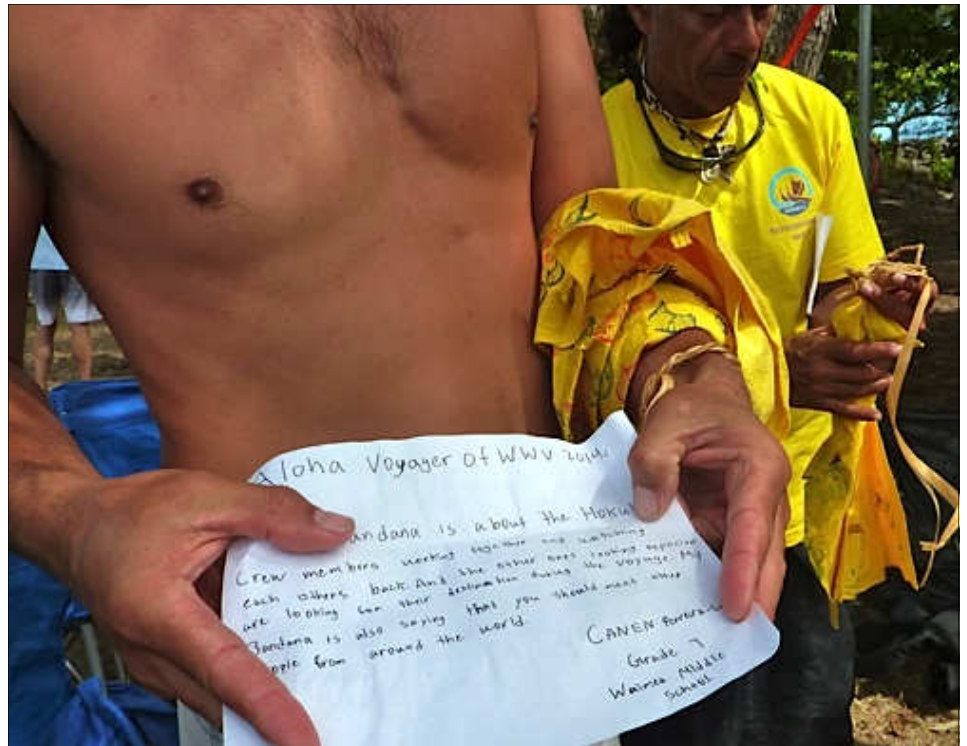 Aloha Voyager of WWV 2014
Bandana is about the Hoku
Crew members working together and watching
each others back. And the other ones looking
are looking for their destination during the voyage. My
Bandana is also saying that you should meet other
people from around the world.
CANEN
Grade 7
Waimea Middle
School